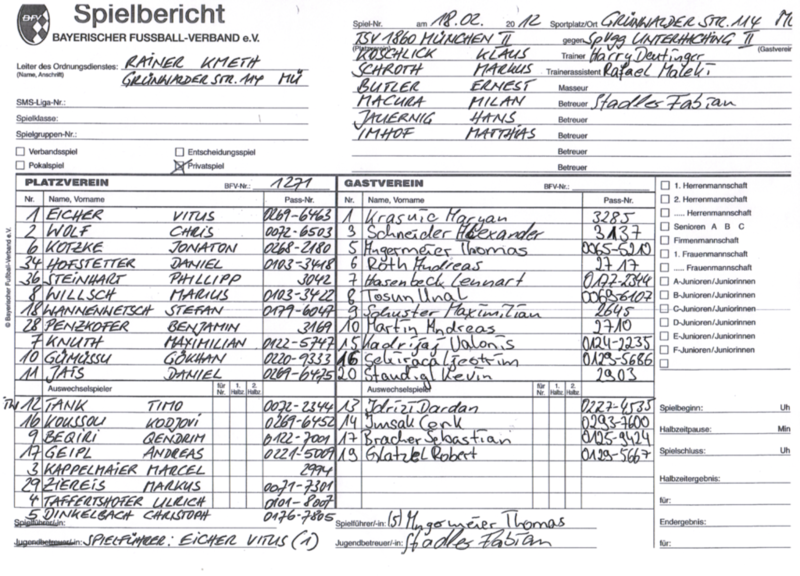 Spielbericht
BAYERISCHER FUSSBALL-VERBAND e.V.
Spiel-Nr. am 18.02. 2012 Sportplatz/Ort GRÜNWALDER STR. 114 MÜ
TSV 1860 MÜNCHEN II gegen SpVgg UNTERHACHING II
(Platzverein) (Gastverein)
Leiter des Ordnungsdienstes: RAINER KMETH
(Name, Anschrift) GRÜNWALDER STR. 114 MÜ
KOSCHLICK KLAUS Trainer Harry Deutinger
SCHROTH MARKUS Trainerassistent Rafael Maleki
BUTLER ERNEST Masseur
MACURA MILAN Betreuer Stadler Fabian
JAUERNIG HANS Betreuer
IMHOF MATTHIAS Betreuer
Betreuer
Betreuer
SMS-Liga-Nr.:
Spielklasse:
Spielgruppen-Nr.:
Verbandsspiel Entscheidungsspiel
Pokalspiel Privatspiel
PLATZVEREIN BFV-Nr.: 1271
Nr. Name, Vorname Pass-Nr.
1 EICHER VITUS 0269-6463
2 WOLF CHRIS 0072-6503
6 KOTZKE JONATON 0268-2180
34 HOFSTETTER DANIEL 0103-3418
36 STEINHART PHILLIPP 3042
8 WILLSCH MARIUS 0103-3422
18 WANNENWETSCH STEFAN 0179-6047
28 PENZKOFER BENJAMIN 3169
7 KNUTH MAXIMILIAN 0122-5747
10 GÜMÜSSU GÖKHAN 0220-9333
11 JAIS DANIEL 0269-6475
Auswechselspieler für Nr. 1. Halbz. 2. Halbz.
TW 12 TANK TIMO 0072-2344
16 KOUSSOU KODJOVI 0269-6452
9 BEQIRI QENDRIM 0122-7001
17 GEIPL ANDREAS 0221-5009
3 KAPPELMAIER MARCEL 2974
29 ZIEREIS MARKUS 0071-7301
4 TAFFERTSHOFER ULRICH 0101-8007
5 DINKELBACH CHRISTOPH 0176-7805
Spielführer/-in:
Jugendbetreuer/-in: SPIELFÜHRER: EICHER VITUS (1)
GASTVEREIN BFV-Nr.:
Nr. Name, Vorname Pass-Nr.
1 Krasnic Maryan 3285
3 Schneider Alexander 3137
5 Angermeier Thomas 0065-6210
6 Roth Andreas 2717
7 Hasenbeck Lennart 0177-2344
8 Tosun Ünal 0069-6107
9 Schuster Maximilian 2645
10 Martin Andreas 2710
15 Kadrijaj Valonis 0124-2235
16 0129-5686
20 Staudigl Kevin 2903
Auswechselspieler für Nr. 1. Halbz. 2. Halbz.
13 Idrizi Dardan 0227-4535
14 Imsak Cenk 0293-7600
17 Bracher Sebastian 0125-9424
19 Glatzel Robert 0129-5667
Spielführer/-in: (5) Angermeier Thomas
Jugendbetreuer/-in: Stadler Fabian
1. Herrenmannschaft
2. Herrenmannschaft
..... Herrenmannschaft
Senioren A B C
Firmenmannschaft
1. Frauenmannschaft
..... Frauenmannschaft
A-Junioren/Juniorinnen
B-Junioren/Juniorinnen
C-Junioren/Juniorinnen
D-Junioren/Juniorinnen
E-Junioren/Juniorinnen
F-Junioren/Juniorinnen
Spielbeginn: Uh
Halbzeitpause: Min
Spielschluss: Uh
Halbzeitergebnis:
für:
Endergebnis:
für:
© Bayerischer Fußball-Verband e.V.